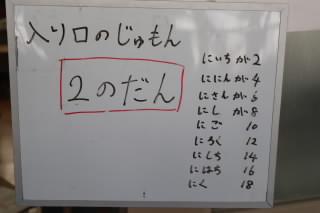 入り口のじゅもん
2のだん
にいちが2
ににんが4
にさんが6
にしが8
にご 10
にろく 12
にしち 14
にはち 16
にく 18